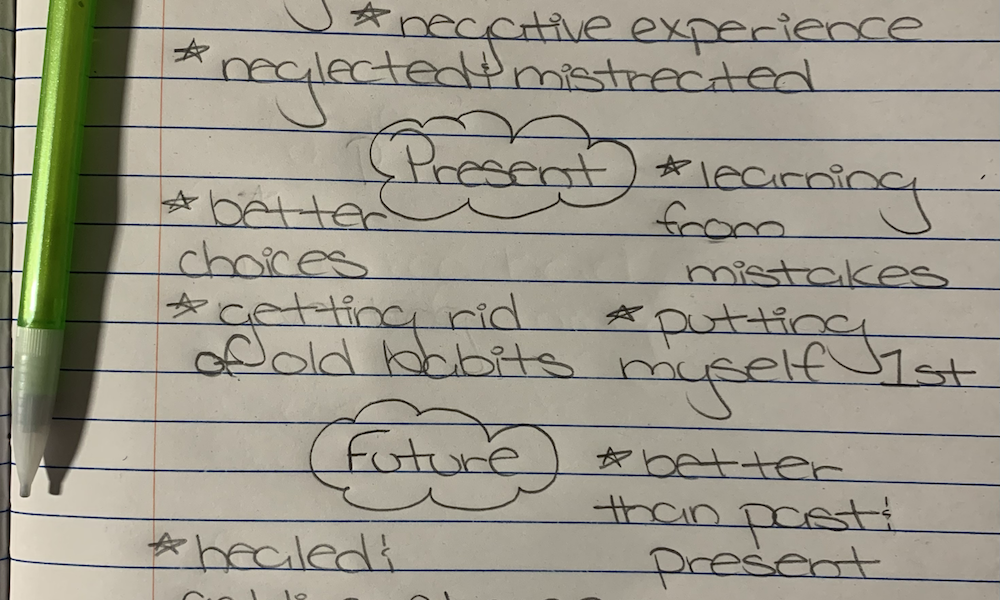 * negative experience
* neglected & mistreated
Present
* learning
* better
from
choices
mistakes
* getting rid
* putting
of old habits
myself 1st
Future
* better
than past &
* healed &
present